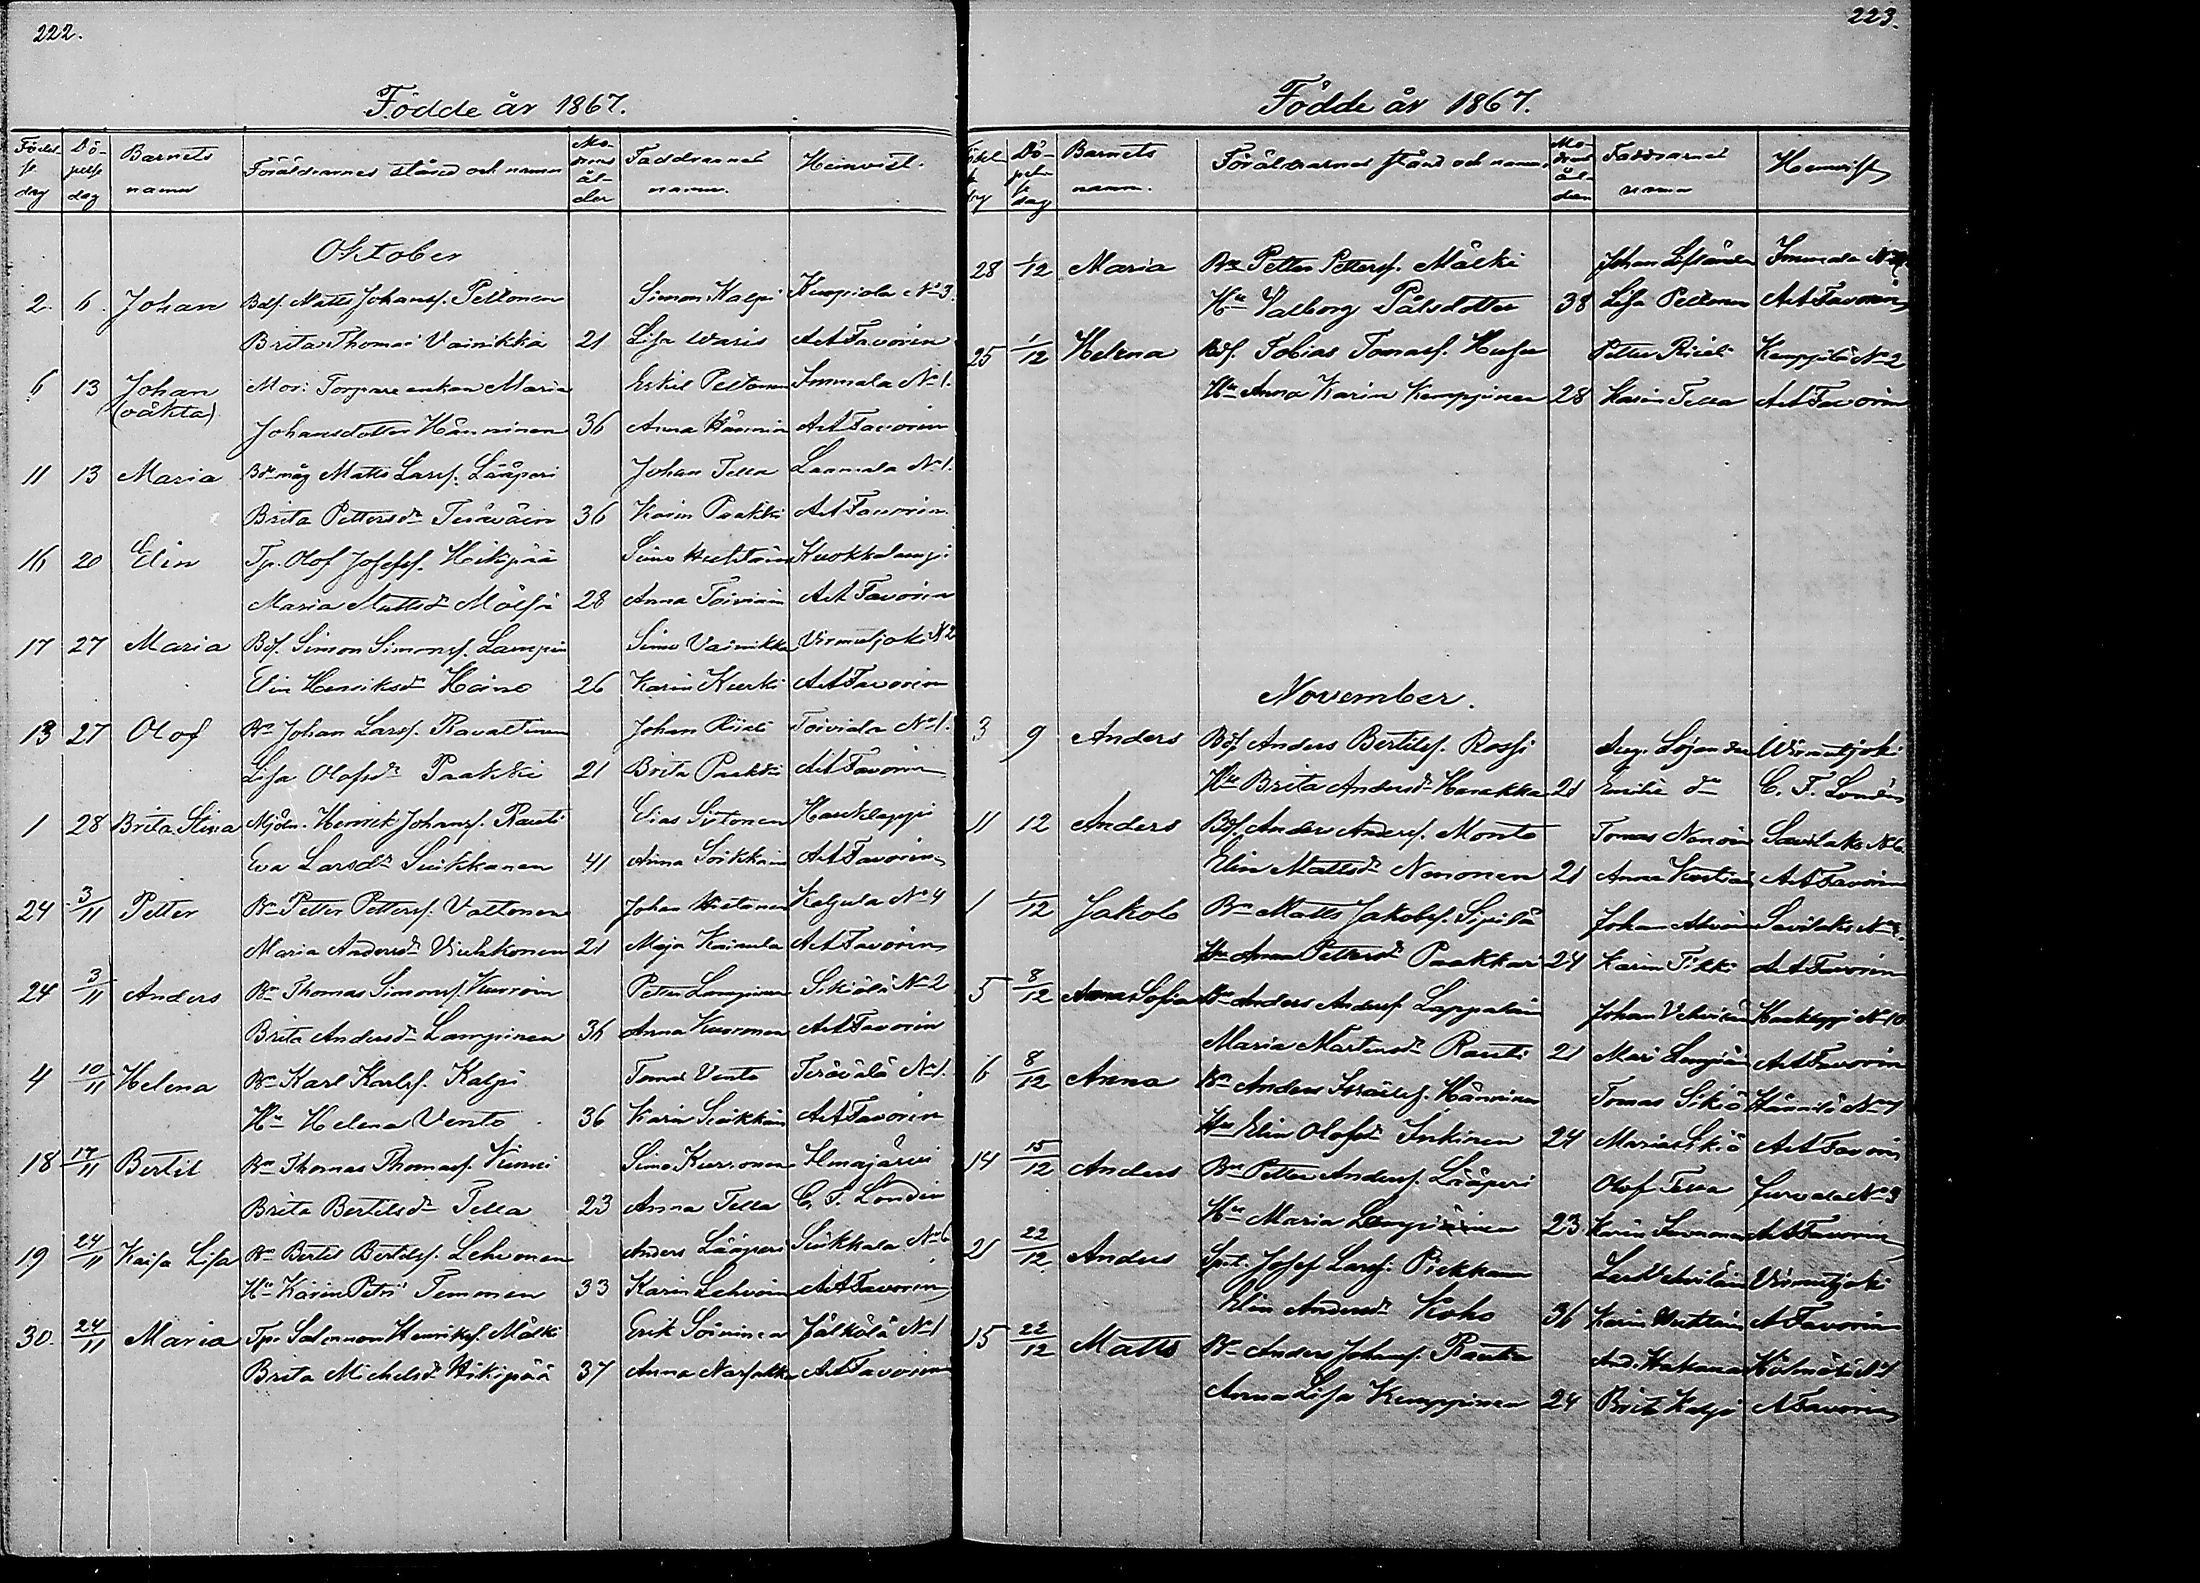 222.
Födde år 1867.
Födel- se dag Dö- pelse dag Barnets namn Föräldrarnes stånd och namn Mo- drens ål- der Faddrarnes namn. Hemvist.
Oktober
2. 6. Johan Bdf. Matts Johansf. Peltonen Simon Kalpi Kurpiola No 3.
Brita Thomasd Vainikka 21 Lisa Waris A A Favorin
6 13 Johan Mor: Torpare enkan Maria Eskil Peltonen Immala No 1.
(oäkta) Johansdotter Hänninen 36 Anna Hännin A A Favorin
11 13 Maria Bde måg Matts Larsf. Lääperi Johan Tella Laamala No 1.
Brita Pettersdr Teräväin 36 Karin Paakki A A Favorin
16 20 Elin Tp. Olof Josefsf. Hikipää Simo Kuokkalampi
Maria Mattsdr Mölsä 28 Anna Toiviain A A Favorin
17 27 Maria Bdf. Simon Simonsf. Lampin Simo Vainikka Virmutjoki No 2
Elin Henriksdr Heino 26 Karin Kurki A A Favorin
13 27 Olof Bn Johan Larsf. Ravattinen Johan Riiali Toiviala No 1.
Lisa Olofsdr Paakki 21 Brita Paakki A A Favorin
1 28 Brita Stina Mjöln. Henrik Johansf. Rauti Elias Sutonen Haukilappi
Eva Larsdr Suikkanen 41 Anna Suikkain A A Favorin
24 3/11 Petter Bn Petter Pettersf. Valtonen Johan Hietanen Kalpula No 4
Maria Andersdr Viuhkonen 21 Maja Kaimula A A Favorin
24 3/11 Anders Bn Thomas Simonsf. Kuuroin Petter Lampinen Sikiälä No 2
Brita Andersdr Lampinen 36 Anna Kuuronen A A Favorin
4 10/11 Helena Bn Karl Karlsf. Kalpi Tomas Vento Terävälä No 1.
Hu Helena Vento 36 Karin Suikkain A A Favorin
18 17/11 Bertil Bn Thomas Thomasf. Kinni Simo Kuuronen Ilmajärvi
Brita Bertilsdr Tella 23 Anna Tella C. F. Londén
19 24/11 Kaisa Lisa Bn Bertil Bertilsf. Lehvonen Anders Lääperi Suikkala No 6
Hu Karin Petri Temonen 33 Karin Lehvoin A A Favorin
30. 24/11 Maria Tp. Salomon Henriksf. Mälki Erik Soininen Jälkölä No 1
Brita Michelsdr Hikipää 37 Anna Narsakka A A Favorin
223.
Födde år 1867.
Födel- se dag Dö- pel- se dag Barnets namn. Föräldrarnes stånd och namn. Mo- drens ål- der Faddrarnes namn Hemvist
28 1/12 Maria Bn Petter Pettersf. Mälki Johan Immala No
Hu Valborg Pålsdotter 38 Lisa Peltonen A A Favorin
25 1/12 Helena Bdf. Tobias Tomasf. Husu Petter Riiali Kemppilä No 2
Hu Anna Karin Kemppinen 28 Karin Tella A A Favorin
November.
3 9 Anders Bdf Anders Bertilsf. Rossi Aug. Löjander Wirmutjoki
Hu Brita Andersdr Harakka 21 Emilie do C. F. Londén
11 12 Anders Bdf. Anders Andersf. Monto Tomas Nenoin Savilaks No 6.
Elin Mattsdr Nenonen 21 Anna A A Favorin
1 1/12 Jakob Bn Matts Jakobsf. Sipilä Johan Savilaks No
Hu Anna Pettersdr Paakkari 24 Karin Tikki A A Favorin
5 8/12 Anna Sofia Bn Anders Andersf Lappalain Johan Vehviläin Haukilappi No 10
Maria Mårtensdr Rauti 21 Mari Lampiain A A Favorin
6 8/12 Anna Bn Anders Israelsf. Hänninen Tomas Sikiö Hännilä No 7
Hu Elin Olofsdr Inkinen 24 Maria Sikiö A A Favorin
14 15/12 Anders Bn Petter Andersf. Lääperi Olof Tella Jurvala No 3
Hu Maria Lampiäinen 23. Karin A A Favorin
21 22/12 Anders Josef Larsf. Pirkkanen Lars Vehviläin Virmutjoki
Elin Andersdr Koho 36 Karin A Favorin
15 22/12 Matts Bn Anders Johansf. Rautia And. Hakanen
Anna Lisa Kemppinen 24 Brita Kalpi A Favorin